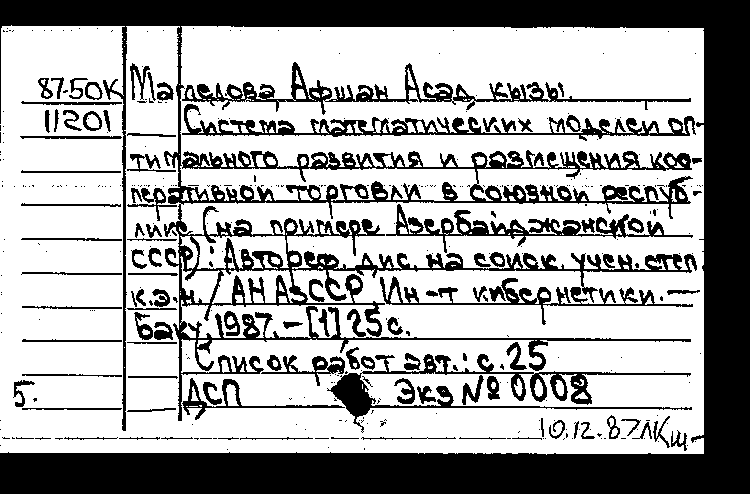 87-50К Мамедова Афшан Асад кызы.
11201 Система математических моделей оп-
тимального развития и размещения коо-
перативной торговли в союзной респуб-
лике (на примере Азербайджанской
СССР): Автореф. дис. на соиск. учен. степ.
к.э.н. / АН АзССР, Ин-т кибернетики. —
Баку, 1987. - [1] 25 с.
Список работ авт.: с. 25
5. ДСП Экз № 0008
10.12.87